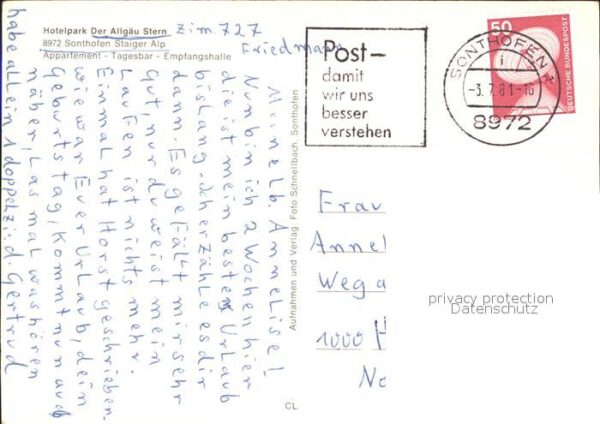 Hotelpark Der Allgäu Stern
8972 Sonthofen Staiger Alp
Appartement - Tagesbar - Empfangshalle
Zim. 727
Friedmann
Post-
damit
wir uns
besser
verstehen
SONTHOFEN 1
i
-3.7.81-16
8972
50
DEUTSCHE BUNDESPOST
Aufnahmen und Verlag Foto Schnellbach, Sonthofen
CL
M
lb Annelise!
Nun bin ich 2 Wochen hier
die ist mein besten Urlaub
bislang, Dher zähle es dir
dann. Es gefällt mir sehr
Gut, nur du weist mein
Laufen ist nichts mehr.
Einmal hat Horst geschrieben.
wie war Euer Urlaub, dein
Geburtstag, kommt nun auch
näher, Las mal was hören
habe allein 1 doppelzi. d. Gertrud
Frau
Annel
Weg a
1000 H
Ne
privacy protection
Datenschutz